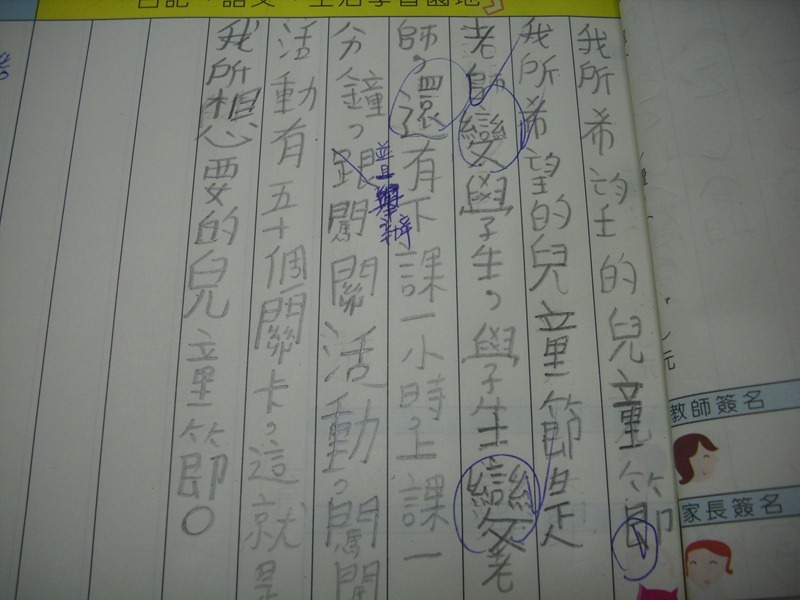 日記、語文、生活學習園地
我所希望的兒童節
我所希望的兒童節是
老師變學生，學生變老
師，還有下課一小時上課一
分鐘，跟闖關活動，闖關
並舉辦
活動有五十個關卡。這就是
我所想要的兒童節。
教師簽名
家長簽名